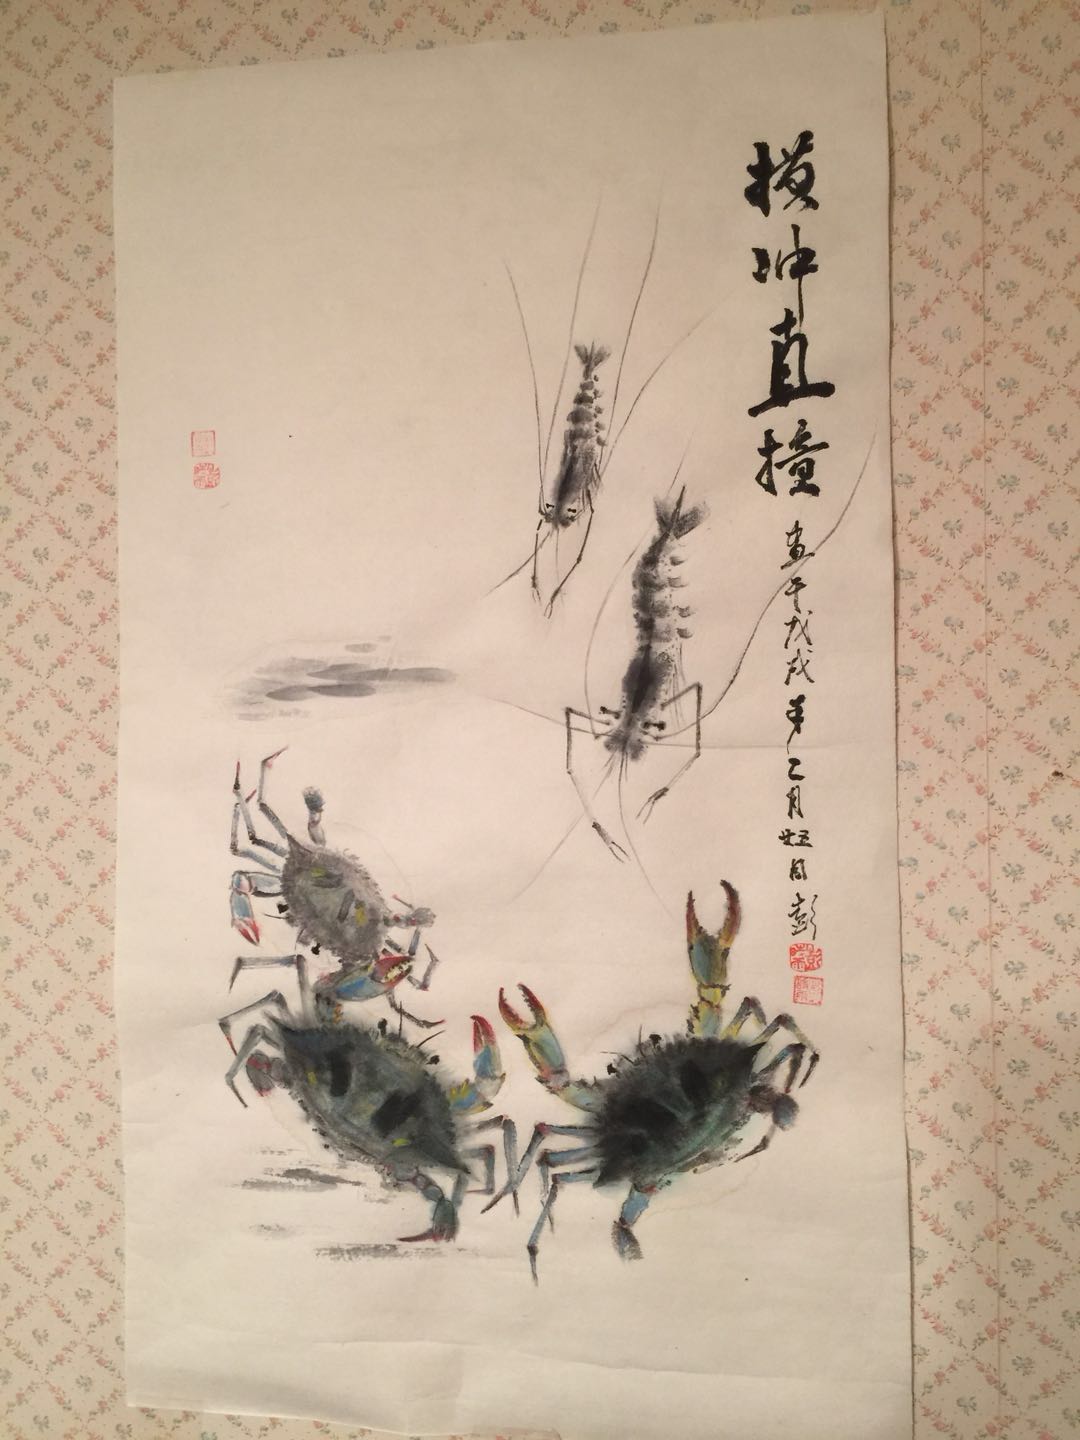 横冲直撞
画于戊戌年二月廿五日彭